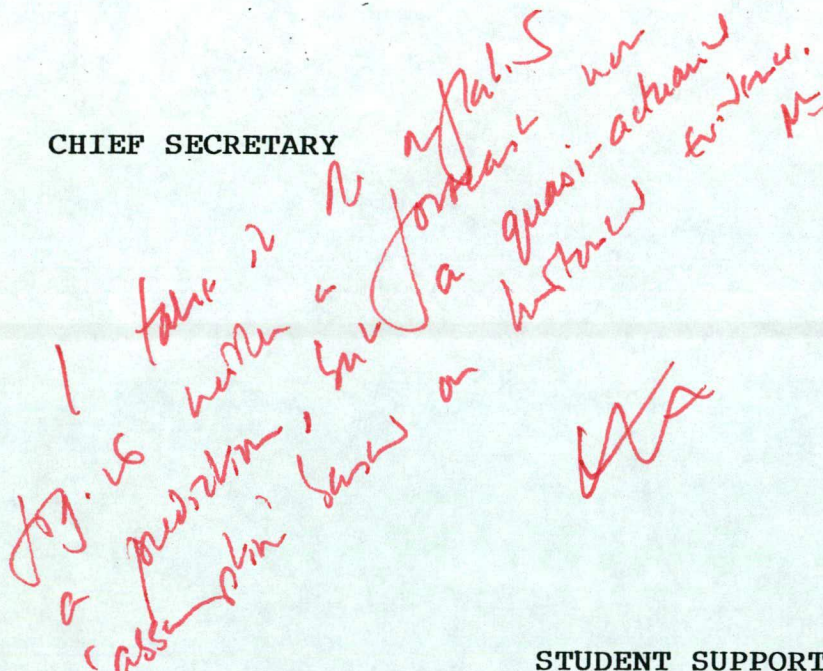 CHIEF SECRETARY
I take it
fig. is neither a forecast nor
a prediction, but a quasi-actuarial
'assumption' based on historical evidence.
STUDENT SUPPORT